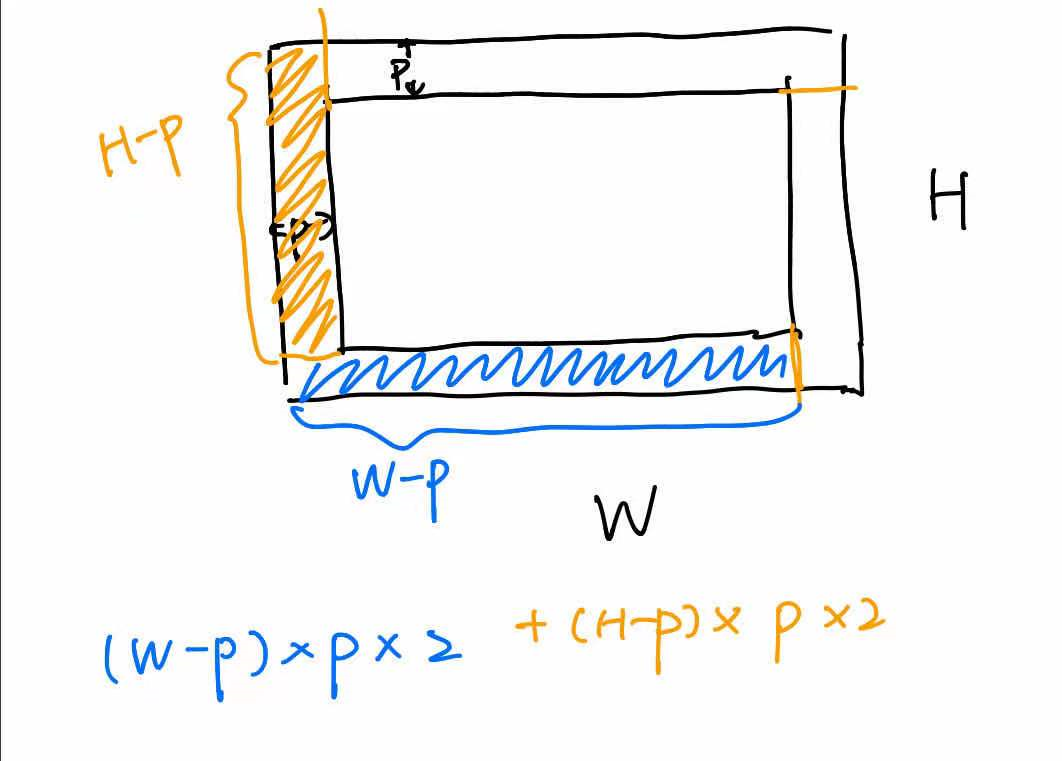 P
H-p
H
p
W-p
W
(W-p)×p×2 +(H-p)× p ×2